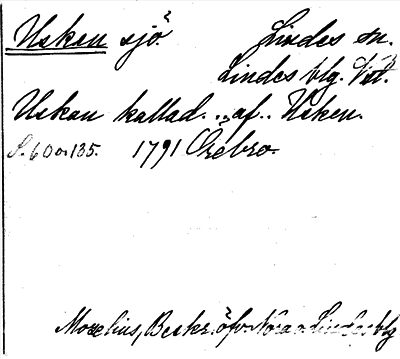 Usken sjö? Lindes sn.
Lindes blg. Vstm.
Uskan kallad. „ af „ Usken.
S. 60 o. 135. 1791 Örebro.
Morelius, Beskr. öfver Nora o Lindes blg